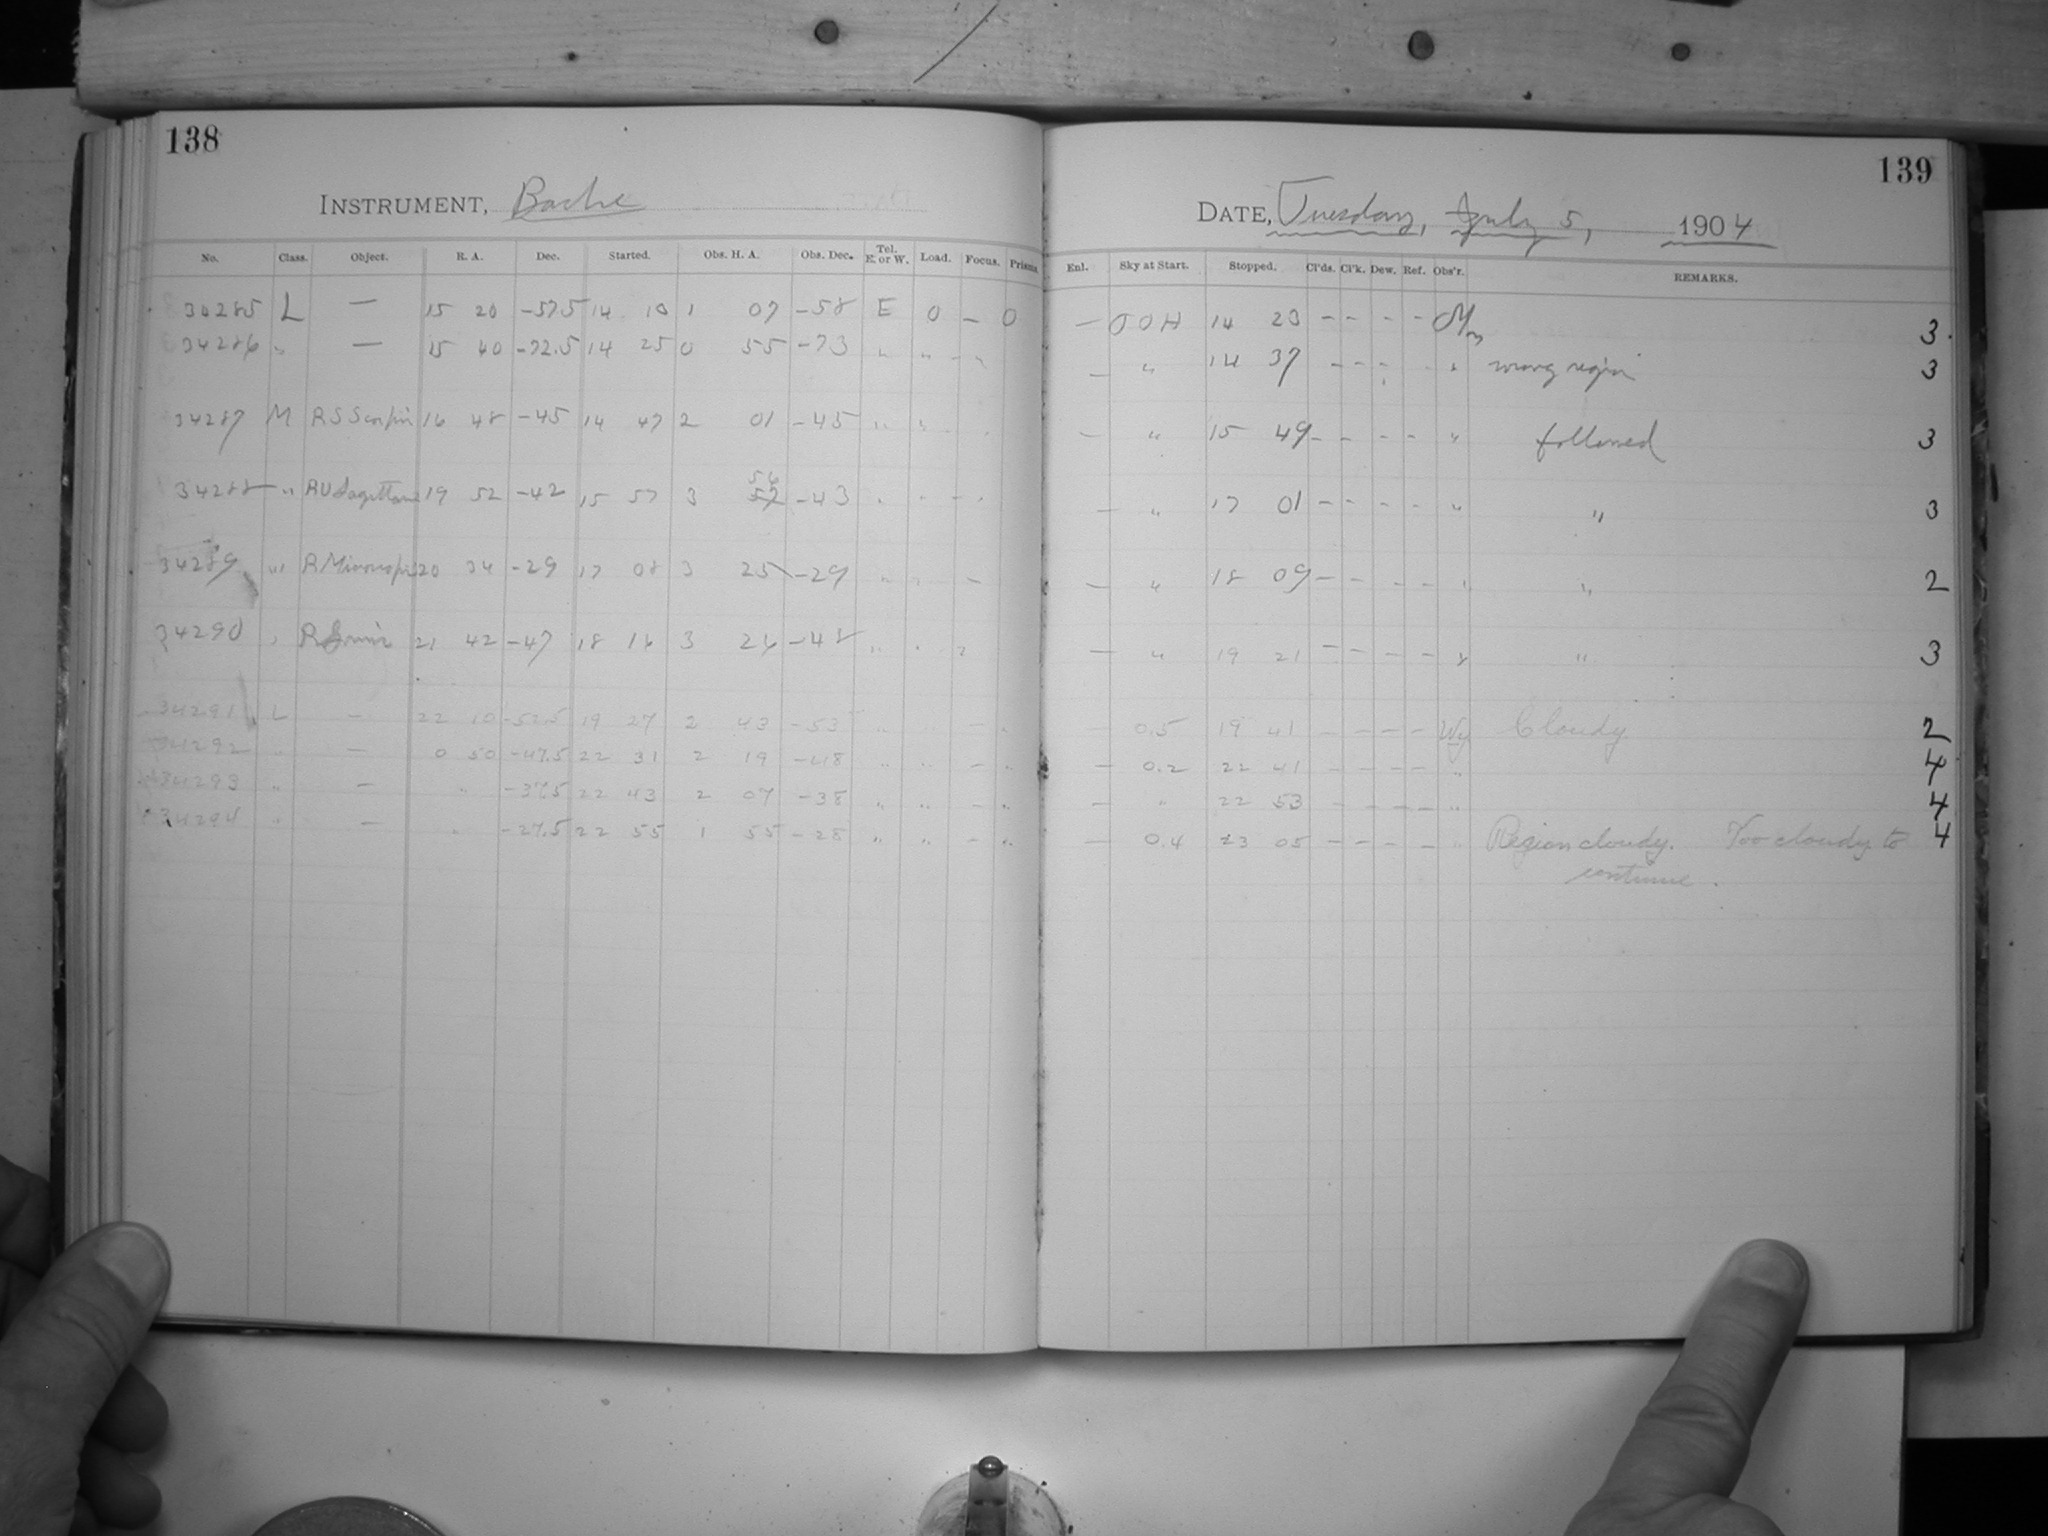 138
INSTRUMENT, Bache
No. Class. Object. R. A. Dec. Started. Obs. H. A. Obs. Dec. Tel. E. or W. Load. Focus. Prisms.
34285 L — 15 20 -57.5 14 10 1 07 -58 E 0 — 0
34286 " — 15 40 -72.5 14 25 0 55 -73 " " - "
34287 M RS Scorpii 16 48 -45 14 47 2 01 -45 " "
34288 " RU Sagittarii 19 52 -42 15 57 3 56 57 -43 " - - "
34289 " R Microscopii 20 34 -29 17 08 3 25 -29 " " —
34290 " R Gruis 21 42 -47 18 16 3 26 -48 " "
34291 L — 22 10 -52.5 19 27 2 43 -53 " " — "
34292 " — 0 50 -47.5 22 31 2 19 -48 " " — "
34293 " — " -37.5 22 43 2 07 -38 " " — "
34294 " — " -27.5 22 55 1 55 -28 " " — "
139
DATE, Tuesday, July 5, 1904
Enl. Sky at Start. Stopped. Cl'ds. Cl'k. Dew. Ref. Obs'r. REMARKS.
— 14 23 - - - - 3
— " 14 37 - - - - " wrong region 3
— " 15 49 - - - - " followed 3
— " 17 01 - - - - " " 3
— " 18 09 - - - - " " 2
— " 19 21 - - - - " " 3
— 0.5 19 41 - - - - Wy Cloudy 2
— 0.2 22 41 - - - - " 4
— " 22 53 - - - - " 4
— 0.4 23 05 - - - - " Region cloudy. Too cloudy to 4
continue.